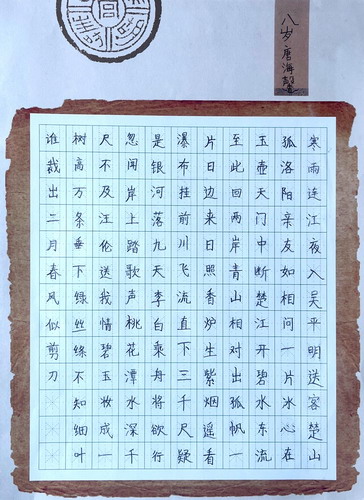 八岁唐海馨
寒雨连江夜入吴平明送客楚山
孤洛阳亲友如相问一片冰心在
玉壶天门中断楚江开碧水东流
至此回两岸青山相对出孤帆一
片日边来日照香炉生紫烟遥看
瀑布挂前川飞流直下三千尺疑
是银河落九天李白乘舟将欲行
忽闻岸上踏歌声桃花潭水深千
尺不及汪伦送我情碧玉妆成一
树高万条垂下绿丝绦不知细叶
谁裁出二月春风似剪刀